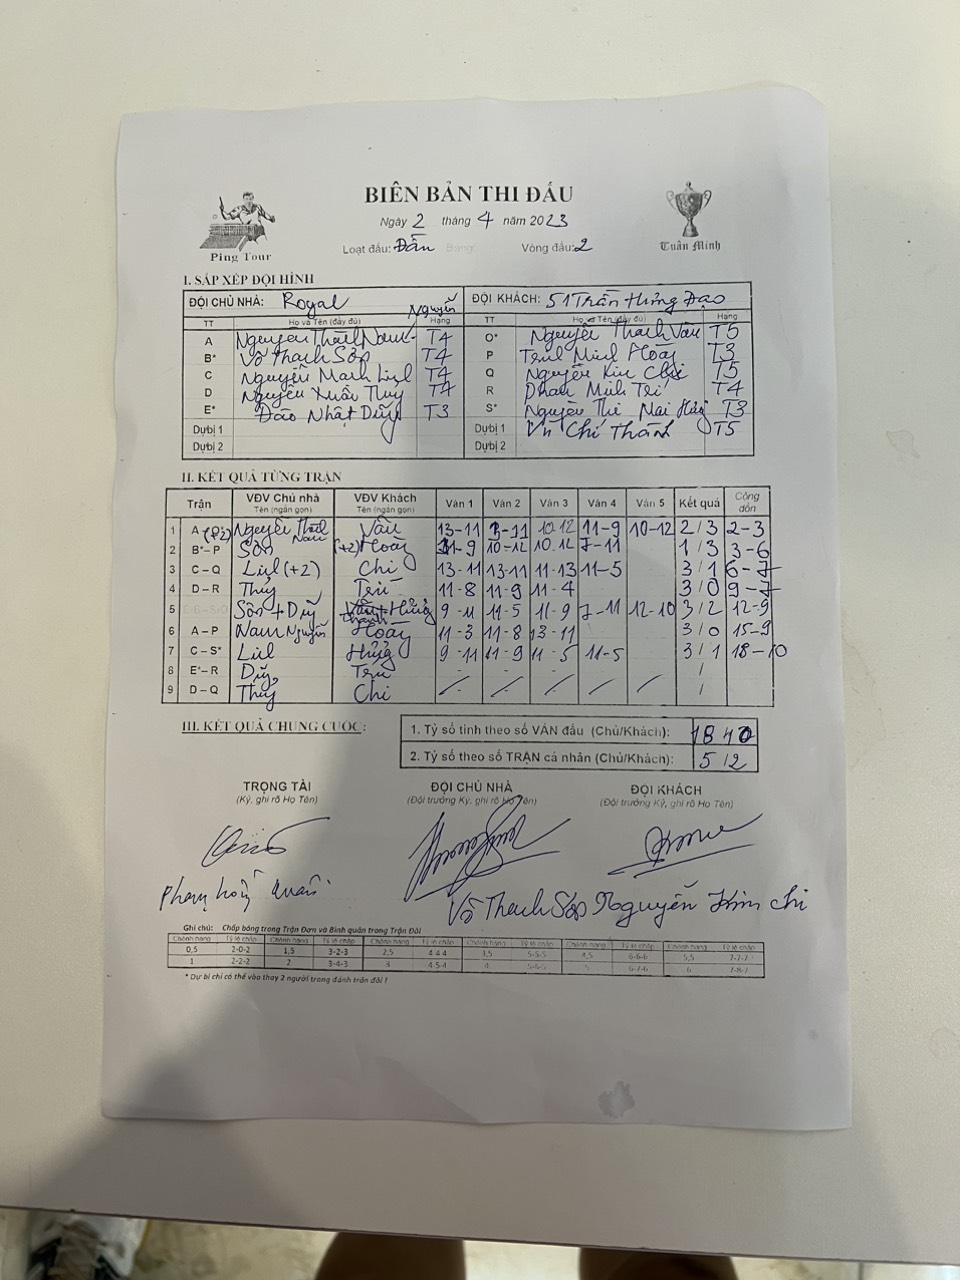 BIÊN BẢN THI ĐẤU
Ngày 2 tháng 4 năm 2023
Ping Tour
Loạt đấu: Bảng: Vòng đấu: 2
Tuấn Minh
I. SẮP XẾP ĐỘI HÌNH
ĐỘI CHỦ NHÀ: Royal
ĐỘI KHÁCH: 51 Trần Hưng Đạo
TT Họ và Tên (đầy đủ) Hạng TT Họ và Tên (đầy đủ) Hạng
A Nguyễn Thành Nam Nguyễn T4 O* Nguyễn Thanh Vân T5
B* Võ Thanh Sơn T4 P Minh Hoàng T3
C Nguyễn Mạnh Linh T4 Q Nguyễn Kim Chi T5
D Nguyễn Xuân Thuỷ T4 R Phan Minh Trí T4
E* Đào Nhật Dũng T3 S* Nguyễn Thị Mai Hưng T3
Dự bị 1 Dự bị 1 Vũ Chí Thành T5
Dự bị 2 Dự bị 2
II. KẾT QUẢ TỪNG TRẬN
Trận VĐV Chủ nhà Tên (ngắn gọn) VĐV Khách Tên (ngắn gọn) Ván 1 Ván 2 Ván 3 Ván 4 Ván 5 Kết quả Cộng dồn
1 A (+2) Nguyễn Thành Nam Vân 13-11 -11 10.12 11-9 10-12 2/3 2-3
2 B*-P Sơn (+2) Hoàng -9 10-12 10.12 7-11 1/3 3-6
3 C-Q Linh (+2) Chi 13-11 13-11 11-13 11-5 3/1 6-7
4 D-R Thuỷ Trí 11-8 11-9 11-4 3/0 9-7
5 Sơn + Dũng Thành + Hưng 9-11 11-5 11-9 7-11 12-10 3/2 12-9
6 A-P Nam Nguyễn Hoàng 11-3 11-8 13-11 3/0 15-9
7 C-S* Linh Hưng 9-11 11-9 11-5 11-5 3/1 18-10
8 E*-R Dũng Trí /
9 D-Q Thuỷ Chi / / / / / /
III. KẾT QUẢ CHUNG CUỘC:
1. Tỷ số tính theo số VÁN đấu (Chủ/Khách): 18
2. Tỷ số theo số TRẬN cá nhân (Chủ/Khách): 5/2
TRỌNG TÀI ĐỘI CHỦ NHÀ ĐỘI KHÁCH
(Ký, ghi rõ Họ Tên) (Đội trưởng Ký, ghi rõ Họ Tên) (Đội trưởng Ký, ghi rõ Họ Tên)
Võ Thanh Sơn Nguyễn Kim Chi
Ghi chú: Chấp bóng trong Trận Đơn và Bình quân trong Trận Đôi
Chênh hạng Tỷ lệ chấp Chênh hạng Tỷ lệ chấp Chênh hạng Tỷ lệ chấp Chênh hạng Tỷ lệ chấp Chênh hạng Tỷ lệ chấp Chênh hạng Tỷ lệ chấp
0,5 2-0-2 1,5 3-2-3 2,5 4-4-4 3,5 5-5-5 4,5 6-6-6 5,5 7-7-7
1 2-2-2 2 3-4-3 3 4-5-4 4 5-6-5 5 6-7-6 6 7-8-7
* Dự bị chỉ có thể vào thay 2 người trong đánh trận đôi !